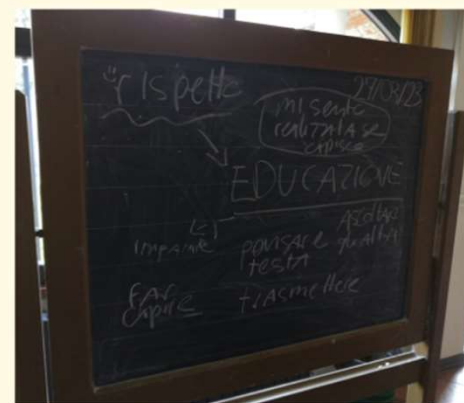 rispetto
27/03/23
mi sento
realizzata se
capisco
EDUCAZIONE
imparare
pensare
testa
ASCOLTARE
gli altri
FAR
capire
trasmettere